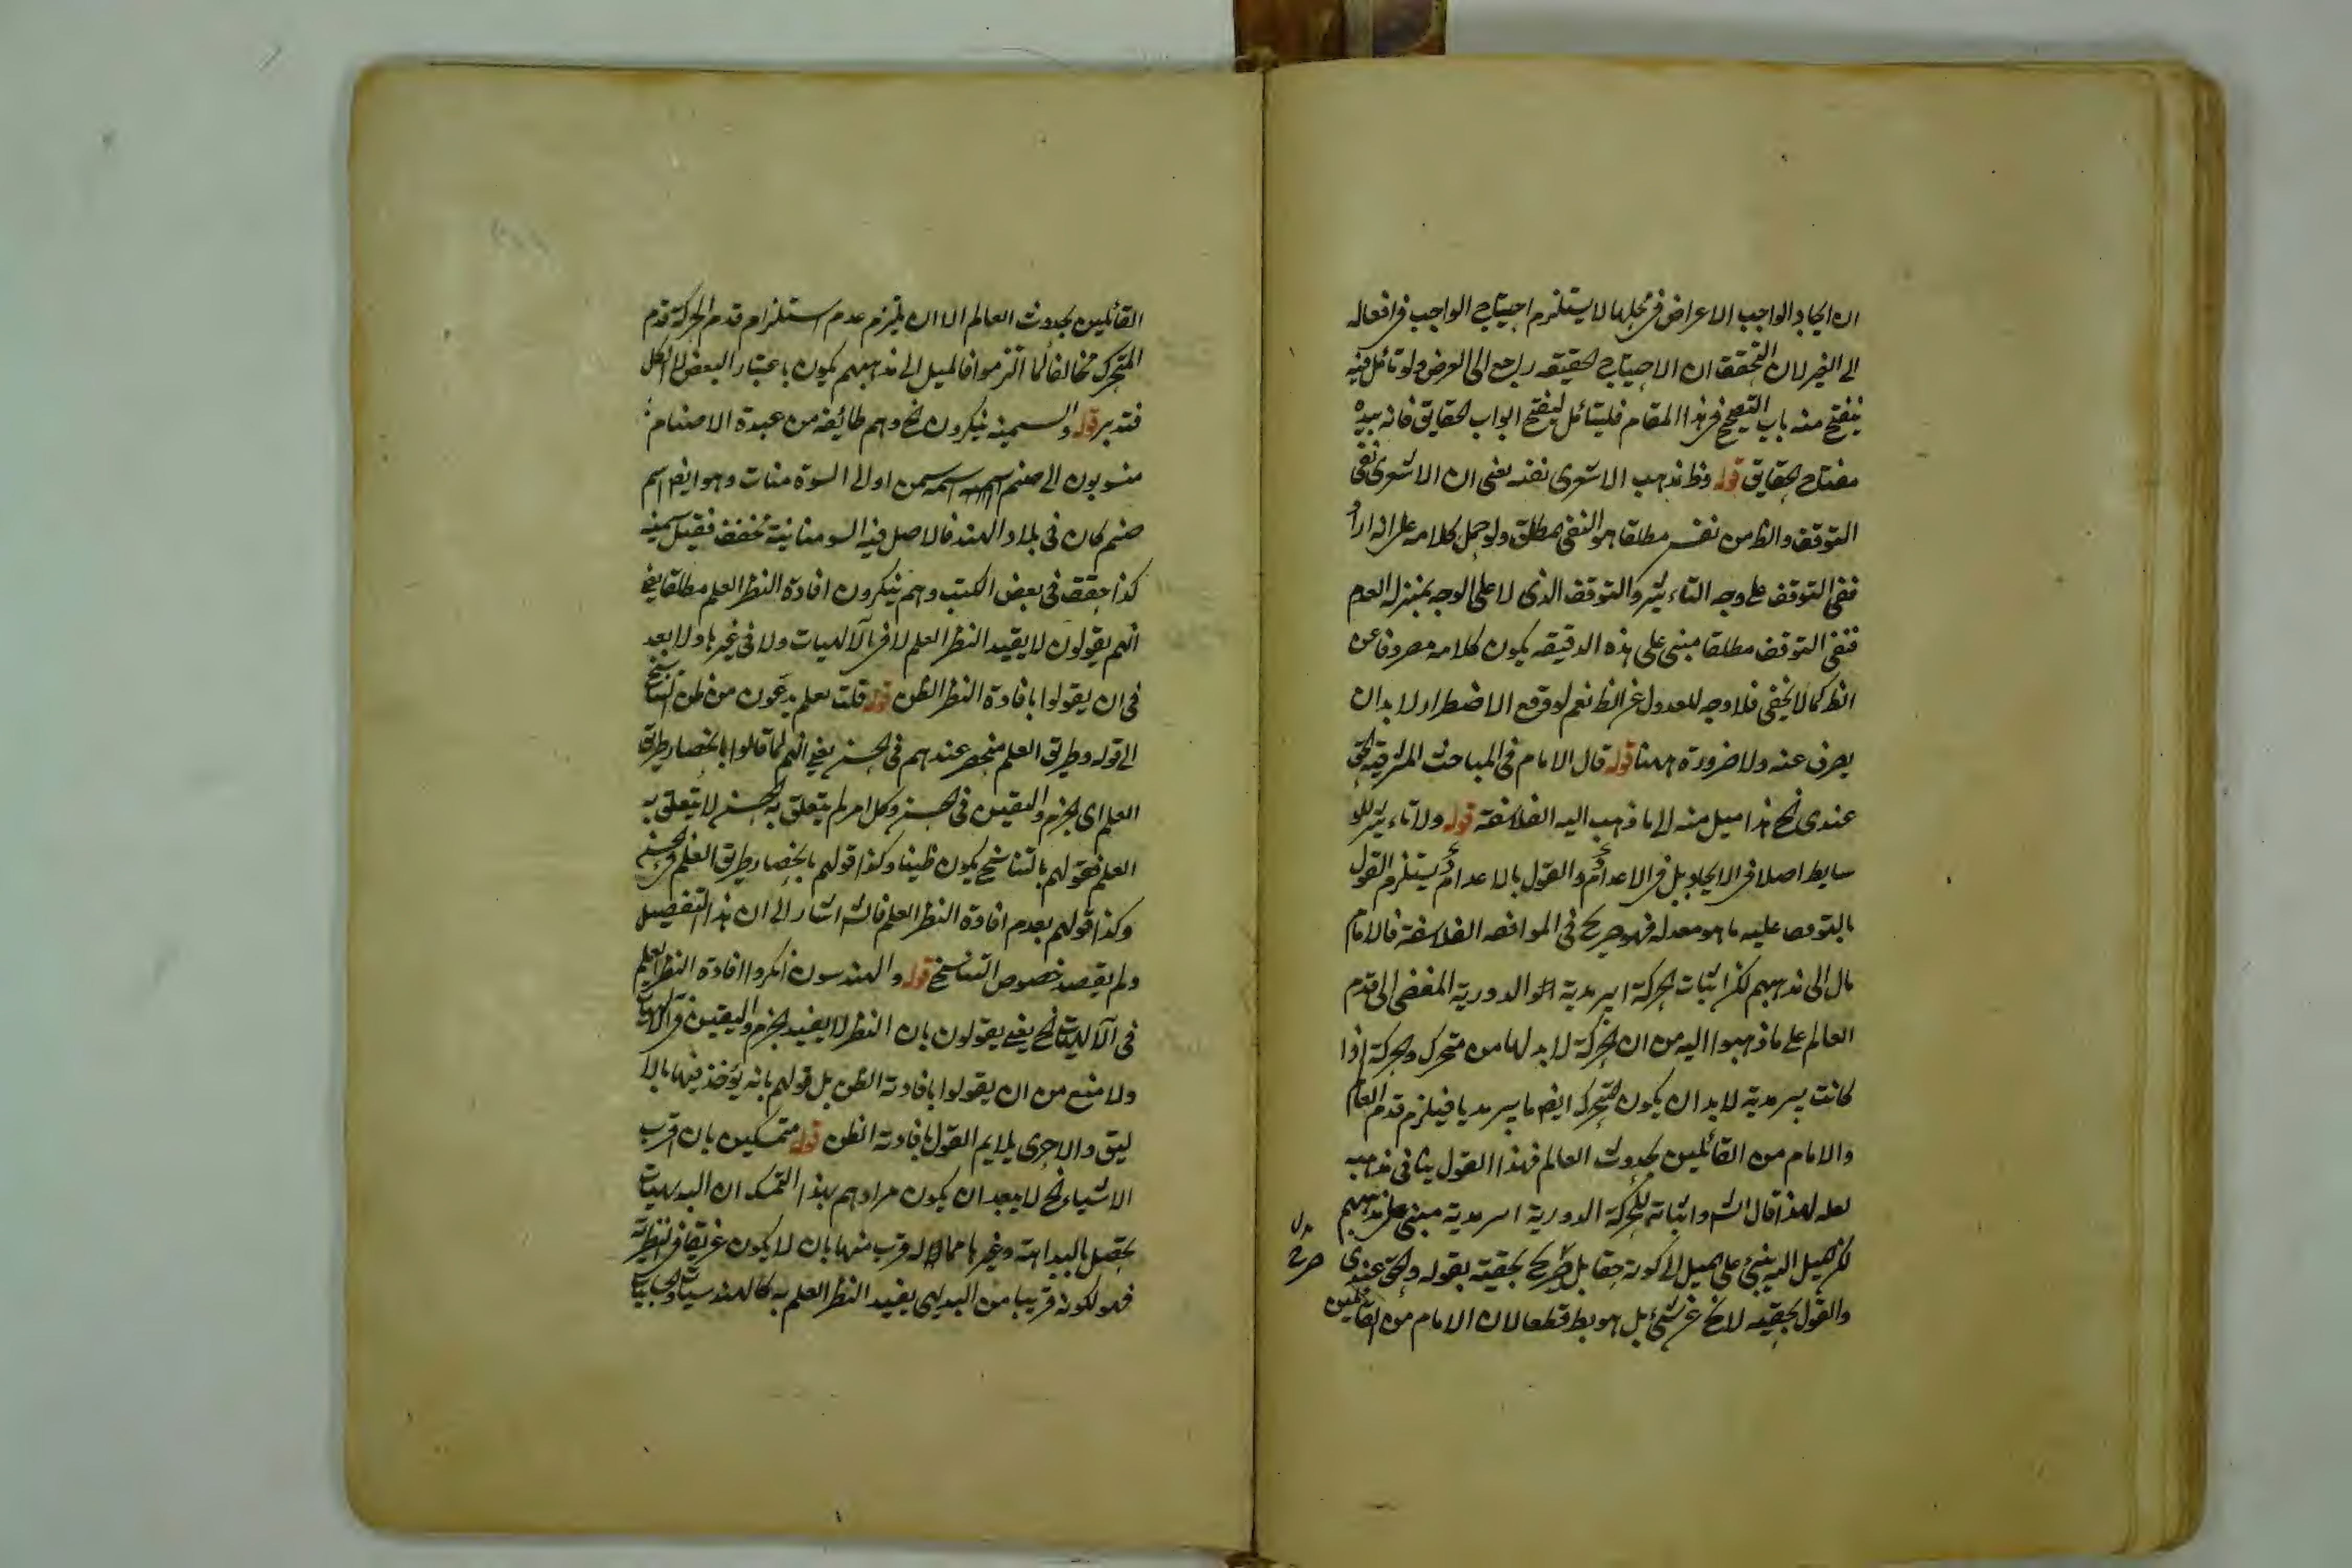 ان ايجاد الواجب الاعراض فى محلها لا يستلزم احتياج الواجب فى افعاله
الى الغير لان التحقق ان الاحتياج لحقيقه راجع الى العرض ولو تأمل فيه
ينفتح منه باب التصحيح فى هذا المقام فليتأمل ليفتح ابواب الحقايق فانه بيده
مفتاح الحقايق قوله وظ مذهب الاشعرى نفيه يعنى ان الاشعرى نفى
التوقف والظ من نفيه مطلقا هو النفى المطلق ولو حمل كلامه على انه اراد
نفى التوقف على وجه التاءثير والتوقف الذى لا على الوجه بمنزلة العدم
فنفى التوقف مطلقا مبنى على هذه الدقيقه يكون كلامه مصروفا عن
الظ كما لا يخفى فلا وجه للعدول عن الظ نعم لو وقع الاضطرار لا بد ان
يصرف عنه ولا ضرورة ههنا قوله قال الامام فى المباحث المشرقية الحق
عندى الخ هذا ميل منه الى ما ذهب اليه الفلاسفة قوله ولا تاءثير للو
سايط اصلا فى الايجاد بل فى الاعداد والقول بالاعداد يستلزم القول
بالتوقف عليه ما هو معد له فهو صريح فى الموافقه الفلاسفة فالامام
مال الى مذهبهم لكن اثبات الحركة السرمدية الدورية المفضى الى قدم
العالم على ما ذهبوا اليه من ان الحركة لا بد لها من متحرك والحركة اذا
كانت سرمدية لا بد ان يكون المتحرك ايضا سرمديا فيلزم قدم العالم
والامام من القائلين بحدوث العالم فهذا القول ينافى مذهبه
لعله لهذا قال الش واثباته للحركة الدورية السرمدية مبنى على مذهبهم
لكن الميل اليه ينبئ على الميل الى كونه حقا بل صرح بحقيته بقوله والحق عندى
والقول بحقيته لا يخ عن شئ بل هو بط قطعا لان الامام من القائلين
صرح
القائلين بحدوث العالم الا ان يلتزم عدم استلزام قدم الحركة قدم
المتحرك مخالفا لما التزموا فالميل الى مذهبهم يكون باعتبار البعض لا الكل
فتدبر قوله والسمنيه ينكرون الخ وهم طائفه من عبدة الاصنام
منسوبون الى صنم اسمه سمن او الى السوة منات وهو ايضا اسم
صنم كان فى بلاد الهند فالاصل فيه السومنانية مخفف فقيل سمنيه
كذا حقق فى بعض الكتب وهم ينكرون افادة النظر العلم مطلقا يعنى
انهم يقولون لا يفيد النظر العلم لا فى الآلهيات ولا فى غيرها ولا بعد
فى ان يقولوا بافادة النظر الظن قوله قلت لعلم يدعون من ظن التناسخ
الى قوله وطريق العلم منحصر عندهم فى الحس يعنى انهم لما قالوا بانحصار طريق
العلم اى الجزم واليقين فى الحس وكل امر لم يتعلق به الحس لا يتعلق به
العلم فقولهم بالتناسخ يكون ظينا وكذا قولهم بانحصار طريق العلم فى الحس
وكذا قولهم بعدم افادة النظر العلم فالش اشار الى ان هذا التفصيل
ولم يقصد خصوص التناسخ قوله والمهندسون انكروا افادة النظر العلم
فى الآلهيات الخ يعنى يقولون بان النظر لا يفيد الجزم واليقين فى الالهيات
ولا منع من ان يقولوا بافادته الظن بل قولهم بانه يؤخذ فيها بالا
ليق والاحرى يلايم القول بافادته الظن قوله متمسكين بان اقرب
الاشياء الخ لا يبعد ان يكون مرادهم بهذا التمسك ان البديهيات
يحصل بالبداهة وغيرها مما له قرب منها بان لا يكون غريقا فى النظرية
فهو لكونه قريبا من البديهى يفيد النظر العلم به كالهندسيات والحسابيات